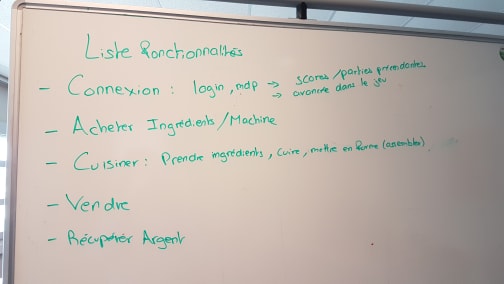 Liste Fonctionnalités
- Connexion : login, mdp → scores/parties précédentes
→ avancée dans le jeu
- Acheter Ingrédients/Machine
- Cuisiner : Prendre ingrédients, Cuire, mettre en forme (assembler)
- Vendre
- Récupérer Argent